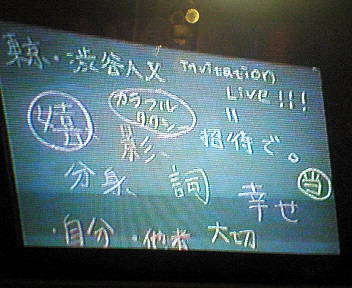 東京・渋谷AX Invitation
Live!!!
嬉 カラフル
タウン
〃
影、 招待で。
分身 詞 幸せ 当
・自分 ・他者 大切